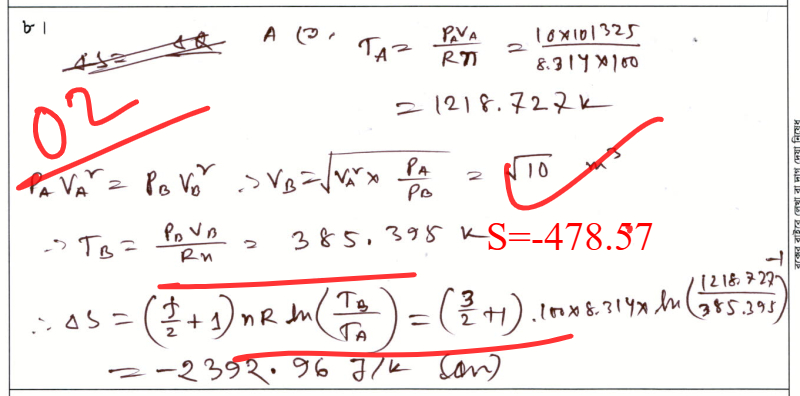 ৮।
A তে, T_A = P_A V_A / Rn = 10×101325 / 8.314×100
= 1218.727 K
02
P_A V_A² = P_B V_B² ∴ V_B = √(V_A² × P_A / P_B) = √10 m³
∴ T_B = P_B V_B / Rn = 385.395 K S=-478.57
∴ ΔS = (f/2 + 1) nR ln (T_B / T_A) = (3/2 + 1) . 100×8.314× ln (1218.727 / 385.395)⁻¹
= -2392.96 J/K (Ans)